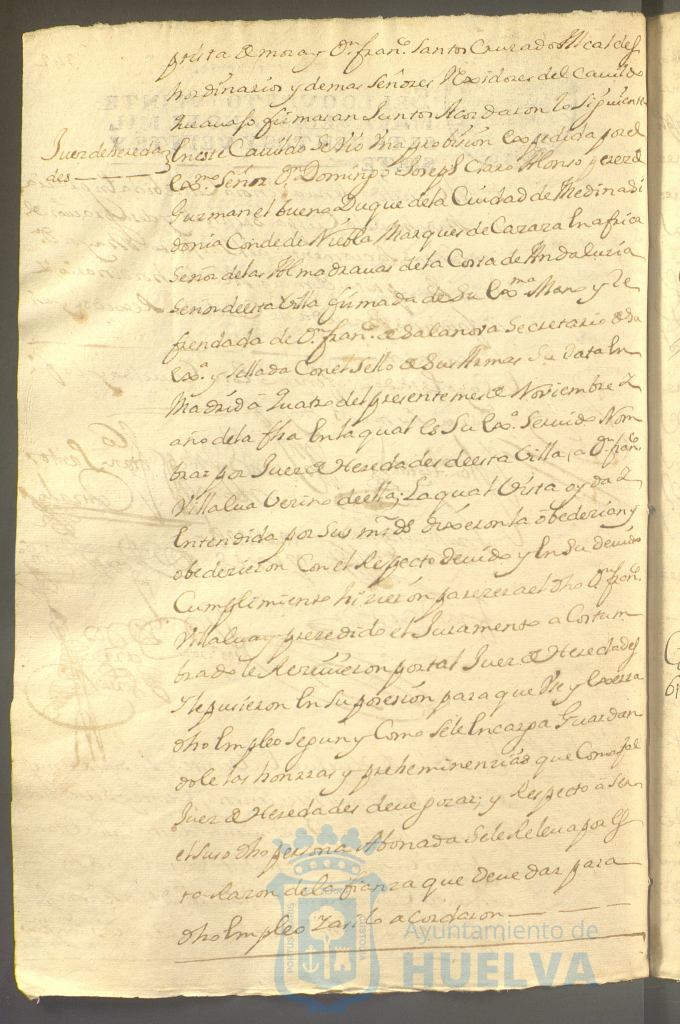 Juez de hereda
des
ptista de mora y Dn. fran.co Santos Cruzado Alcaldes
hordinarios y demas Señores Rexidores del Cavildo
que avajo firmaran Juntos Acordaron lo siguiente
En este Cavildo se Vio Una probision expedida por el
Exmo. Señor Dn. Domingo Joseph Claro Alonso perez de
Guzman el bueno Duque de la Ciudad de Medina Si
donia Conde de Niebla Marques de Cazaza En africa
Señor de las Almadravas de la Costa de Andalucia
Señor de esta Villa firmada de Su Exma. Mano y Re
frendada de Dn. fran.co de Salanova Secretario de Su
Exa. y sellada Con el Sello de Sus Armas Su data En
Madrid a quatro del presente mes de Noviembre y
año de la fha En la qual es Su Exa. Servido Nom
brar por Juez de Heredades de esta Villa, a Dn. fran.co
Villalva Vezino de ella; La qual Vista oyda y
Entendida por Sus mrds. Dixeron la obedezian y
obedezieron Con el Respecto devido y En Su devido
Cumplimiento hizieron parezer a el dho Dn. fran.co
Villalva y prezedido el Juramento a Costum
brado le Rezivieron por tal Juez de Heredades
y le pusieron En Su posesion para que Use y Exerza
dho Empleo Segun y Como Se le Encarga Guardan
dole las honrras y preheminenzias que Como tal
Juez de Heredades deve gozar; y Respecto a Ser
el Suso dho persona Abonada Se le Releva por Es
ta Razon de la fianza que Deve dar para
dho Empleo y asi lo acordaron
Ayuntamiento de
HUELVA